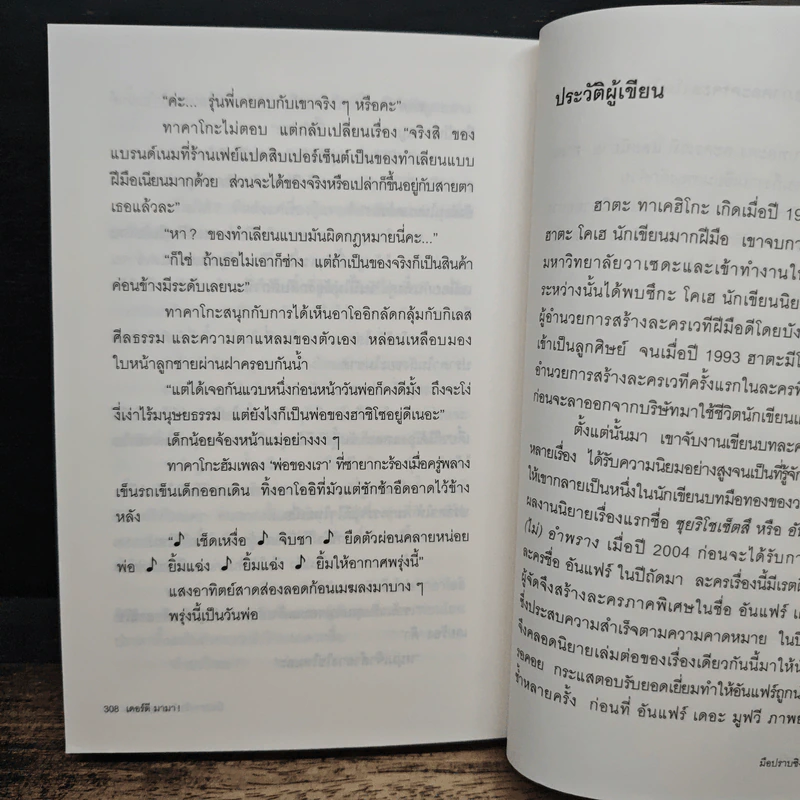 “ค่ะ... รุ่นพี่เคยคบกับเขาจริง ๆ หรือคะ”
ทาคาโกะไม่ตอบ แต่กลับเปลี่ยนเรื่อง “จริงสิ ของ
แบรนด์เนมที่ร้านเฟย์แปดสิบเปอร์เซ็นต์เป็นของทำเลียนแบบ
ฝีมือเนียนมากด้วย ส่วนจะได้ของจริงหรือเปล่าก็ขึ้นอยู่กับสายตา
เธอแล้วละ”
“หา? ของทำเลียนแบบมันผิดกฎหมายนี่คะ...”
“ก็ใช่ ถ้าเธอไม่เอาก็ช่าง แต่ถ้าเป็นของจริงก็เป็นสินค้า
ค่อนข้างมีระดับเลยนะ”
ทาคาโกะสนุกกับการได้เห็นอาโออิกลัดกลุ้มกับกิเลส
ศีลธรรม และความตาแหลมของตัวเอง หล่อนเหลือบมอง
ใบหน้าลูกชายผ่านฝาครอบกันน้ำ
“แต่ได้เจอกันแวบหนึ่งก่อนหน้าวันพ่อก็คงดีมั้ง ถึงจะโง่
งี่เง่าไร้มนุษยธรรม แต่ยังไงก็เป็นพ่อของฮาชิโซอยู่ดีเนอะ”
เด็กน้อยจ้องหน้าแม่อย่างงง ๆ
ทาคาโกะฮัมเพลง ‘พ่อของเรา’ ที่ซายากะร้องเมื่อครู่พลาง
เข็นรถเข็นเด็กออกเดิน ทิ้งอาโออิที่มัวแต่ชักช้าอืดอาดไว้ข้าง
หลัง
“♪ เช็ดเหงื่อ ♪ จิบชา ♪ ยืดตัวผ่อนคลายหน่อย
พ่อ ♪ ยิ้มแฉ่ง ♪ ยิ้มแฉ่ง ♪ ยิ้มให้อากาศพรุ่งนี้”
แสงอาทิตย์สาดส่องลอดก้อนเมฆลงมาบาง ๆ
พรุ่งนี้เป็นวันพ่อ
308 เคอร์ตี มามา!
ประวัติผู้เขียน
ฮาตะ ทาเคฮิโกะ เกิดเมื่อปี
ฮาตะ โคเฮ นักเขียนมากฝีมือ เขาจบกา
มหาวิทยาลัยวาเซดะและเข้าทำงานใ
ระหว่างนั้นได้พบซึกะ โคเฮ นักเขียนนิย
ผู้อำนวยการสร้างละครเวทีฝีมือดีโดยบัง
เข้าเป็นลูกศิษย์ จนเมื่อปี 1993 ฮาตะมีโ
อำนวยการสร้างละครเวทีครั้งแรกในละครที่
ก่อนจะลาออกจากบริษัทมาใช้ชีวิตนักเขียนเ
ตั้งแต่นั้นมา เขาจับงานเขียนบทละค
หลายเรื่อง ได้รับความนิยมอย่างสูงจนเป็นที่รู้จัก
ให้เขากลายเป็นหนึ่งในนักเขียนบทมือทองของว
ผลงานนิยายเรื่องแรกชื่อ ซุยริโชเซ็ตสึ หรือ อัน
(ไม่) อำพราง เมื่อปี 2004 ก่อนจะได้รับกา
ละครชื่อ อันแฟร์ ในปีถัดมา ละครเรื่องนี้มีเรตติ
ผู้จัดจึงสร้างละครภาคพิเศษในชื่อ อันแฟร์ เ
ซึ่งประสบความสำเร็จตามความคาดหมาย ในปี
จึงคลอดนิยายเล่มต่อของเรื่องเดียวกันนี้มาให้นั
รอคอย กระแสตอบรับยอดเยี่ยมทำให้อันแฟร์ถูกน
ซ้ำหลายครั้ง ก่อนที่ อันแฟร์ เดอะ มูฟวี ภาพย
มือปราบซิง